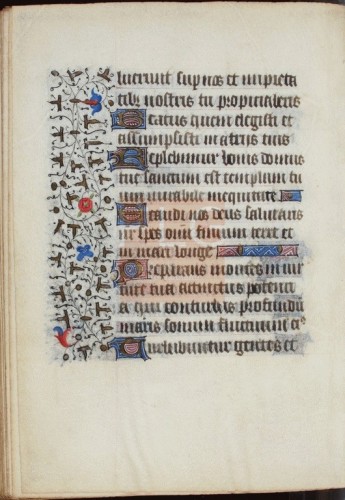 luerunt sup nos et impieta
tib; nostris tu propiciaberis
Beatus quem elegisti et
assumpsisti in atriis tuis
Replebimur bonis domus
tue sanctum est templum tu
um mirabile in equitate
Exaudi nos deus salutaris
nr spes oim finium terre et
in mari longe
montes in vir
tute tua accinctus potenci
a qui conturbas profundū
maris sonum fluctuum ei9
gentes et